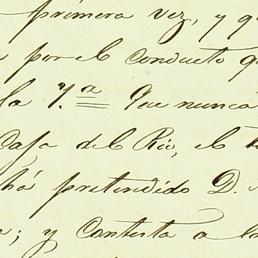 primera vez, y q
por el conducto q
la 7.ª Que nunca
Casa del Rio, el
ha pretendido D.
; y Contesta a la